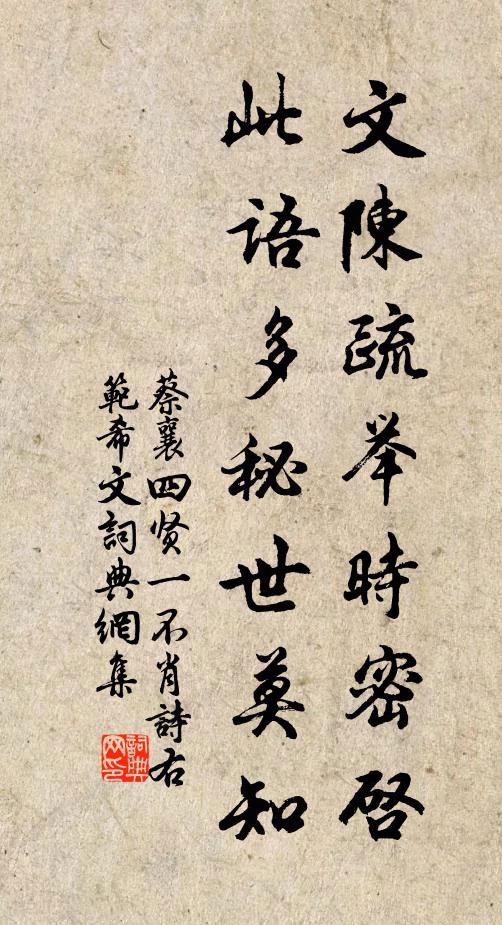 文陳疏举時密啓
此語多秘世莫知
蔡襄四贤一不肖詩右
範希文詞典網集
詞典網印